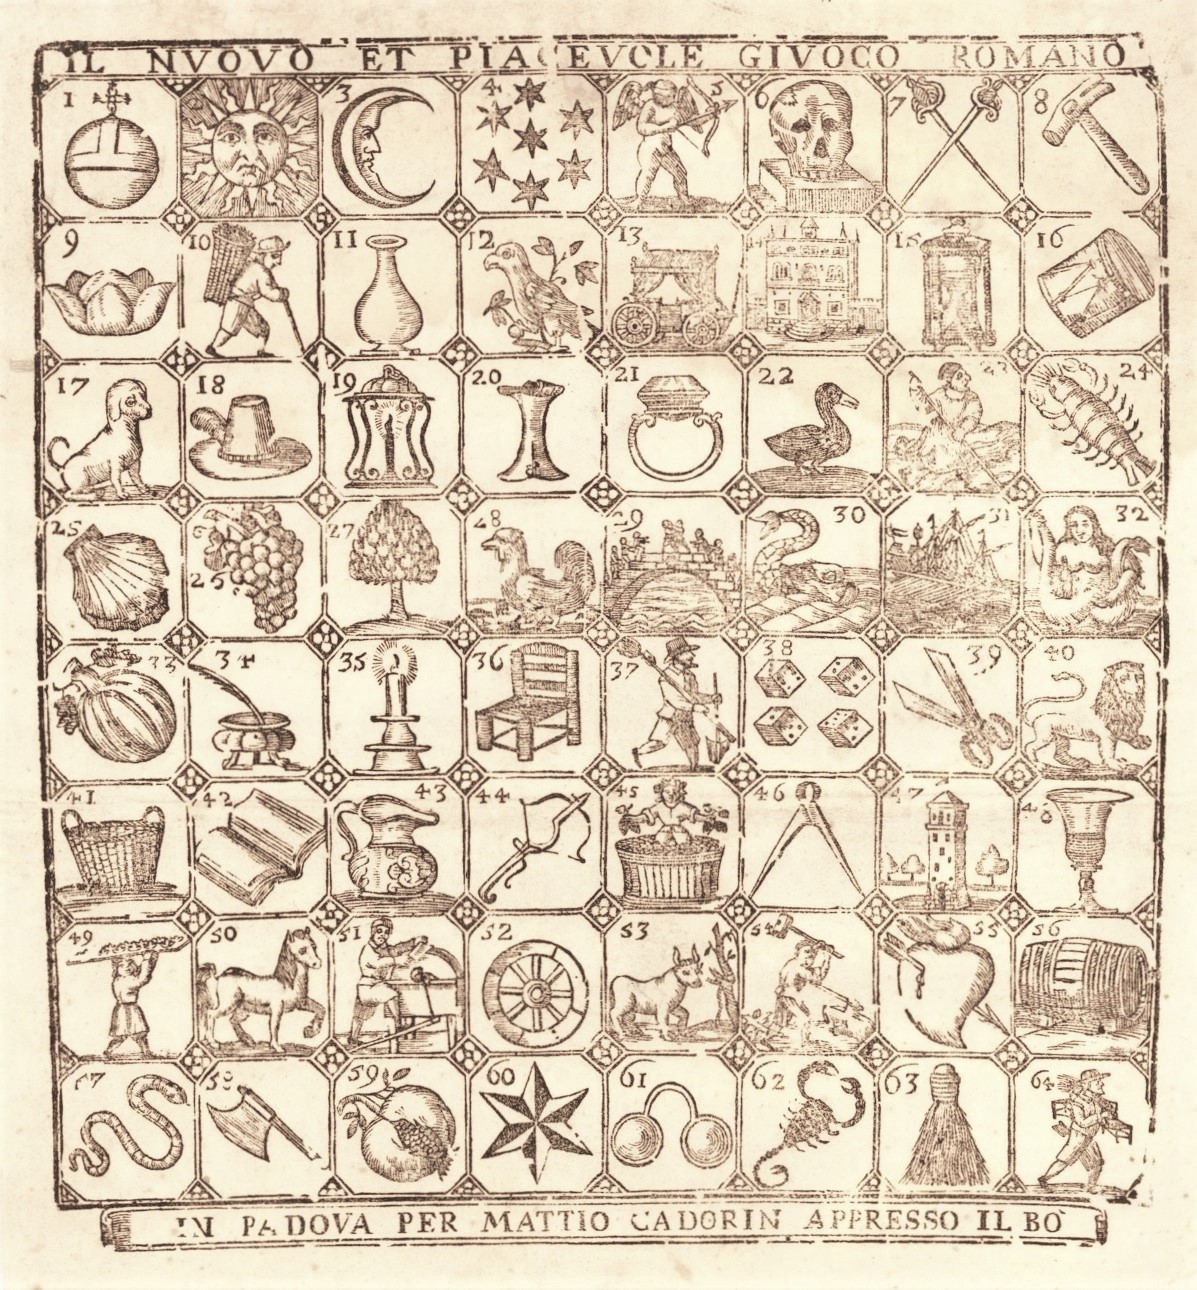 IL NVOVO ET PIACEVOLE GIVOCO ROMANO
1 2 3 4 5 6 7 8
9 10 11 12 13 15 16
17 18 19 20 21 22 23 24
25 26 27 28 29 30 31 32
33 34 35 36 37 38 39 40
41 42 43 44 45 46 47 48
49 50 51 52 53 54 55 56
57 58 59 60 61 62 63 64
IN PADOVA PER MATTIO CADORIN APPRESSO IL BO